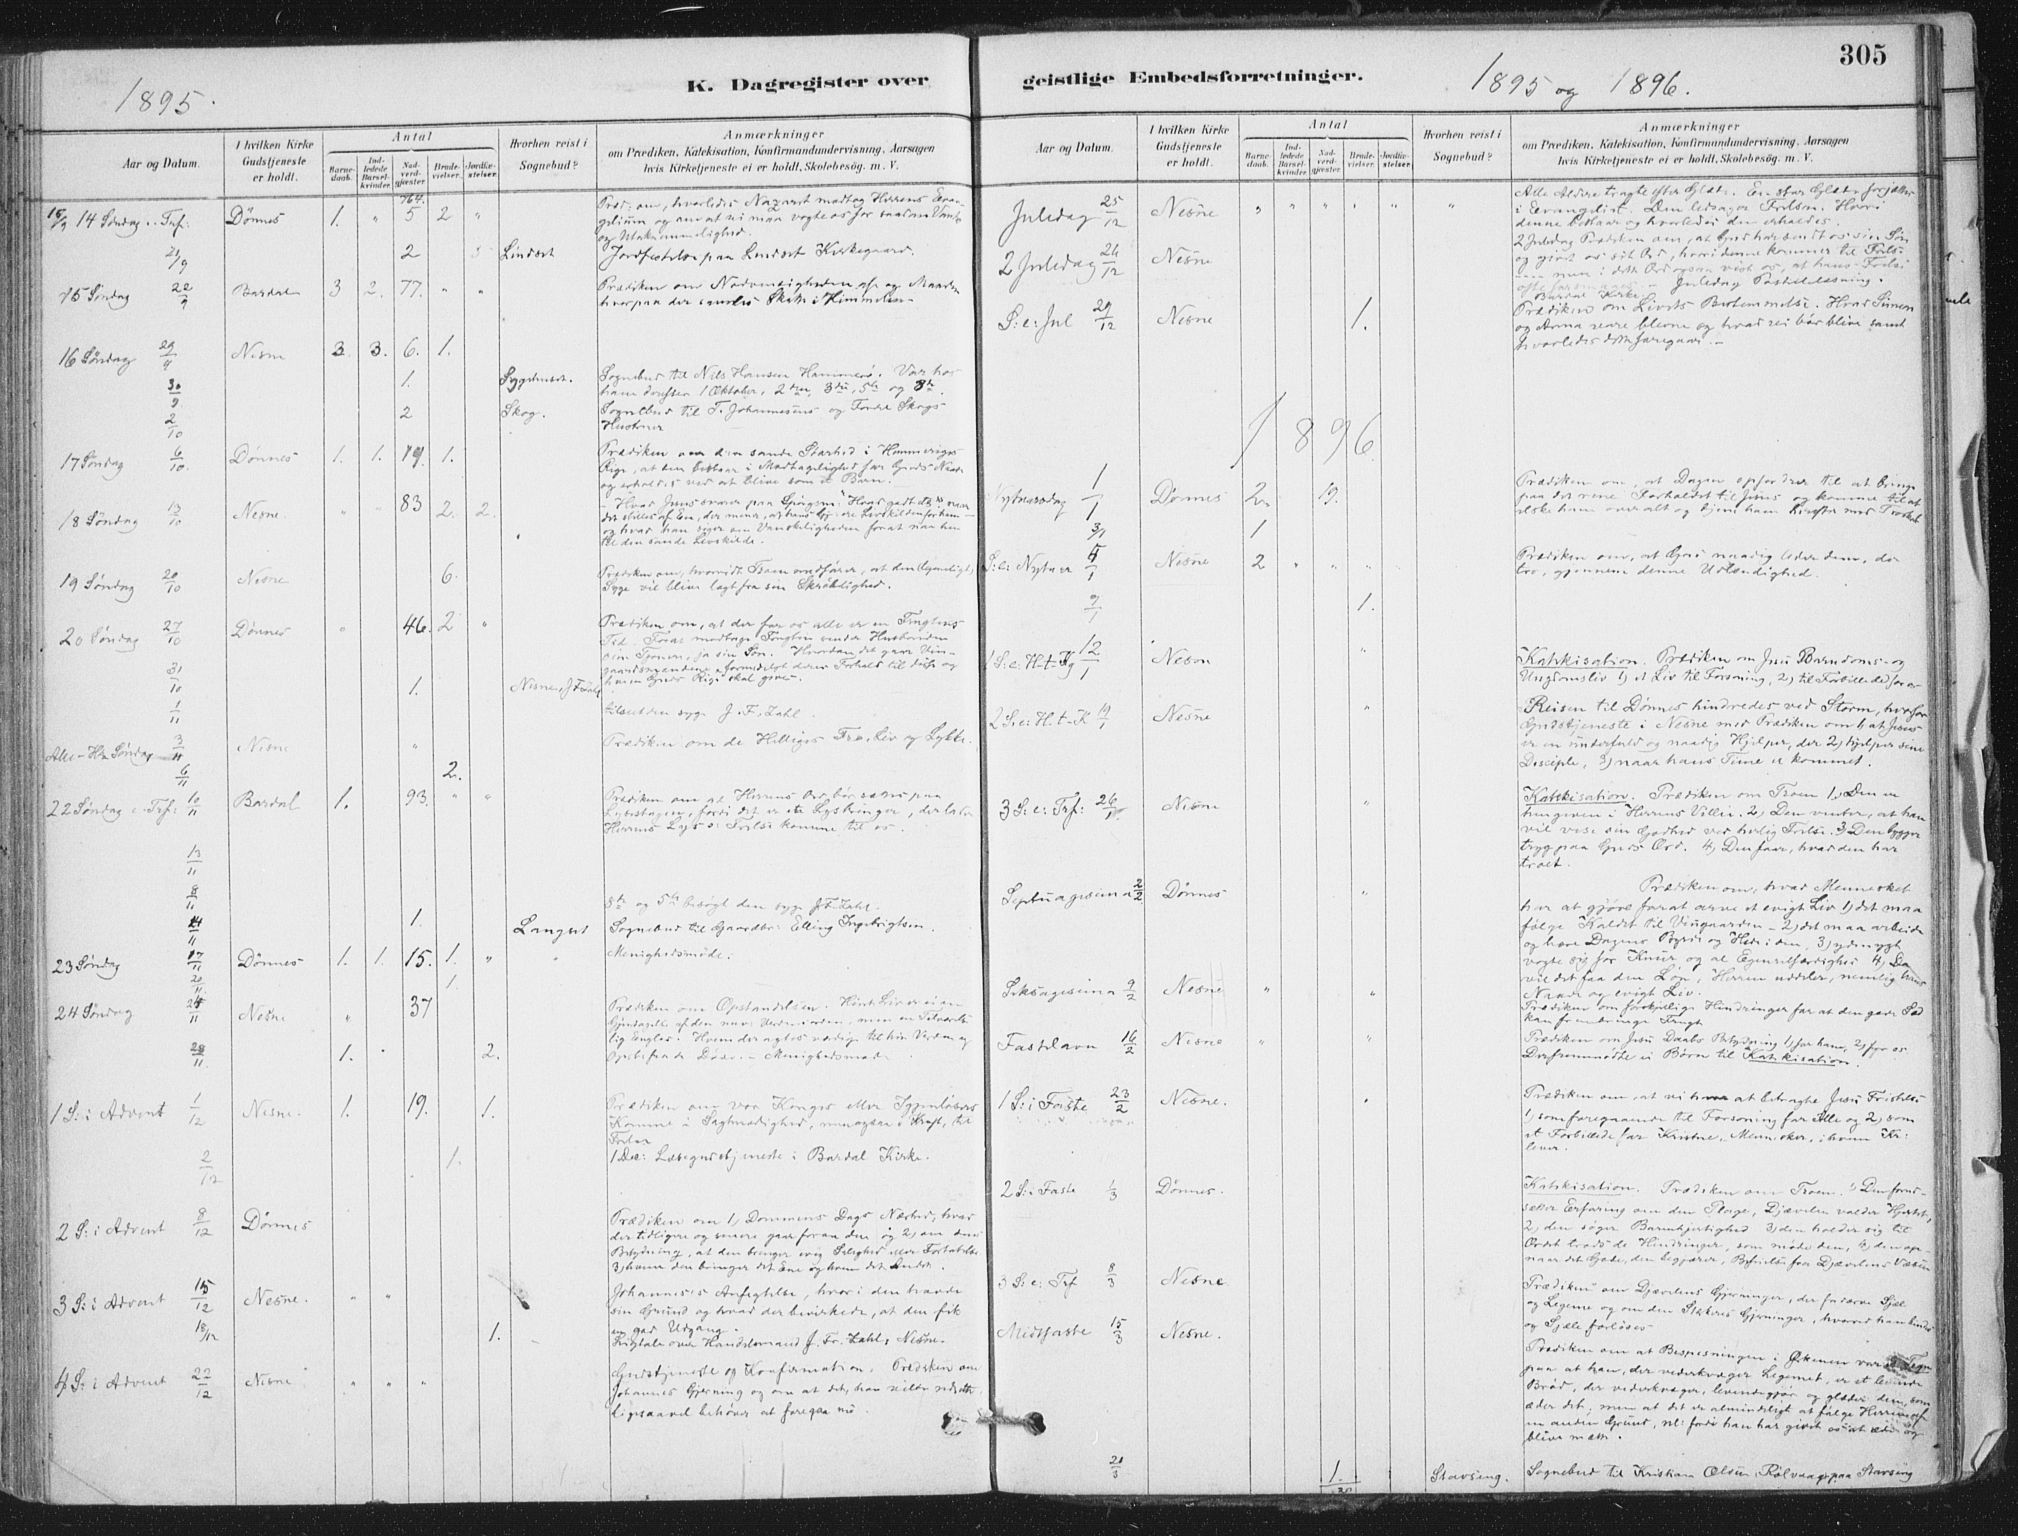 305
1895.
K. Dagregister over
geistlige Embedsforretninger.
1895 og 1896.
Aar og Datum.
I hvilken Kirke Gudstjeneste er holdt.
Antal
Barnedaab.
Indledede Barselkvinder.
Nadverdgjæster
Brudevielser.
Jordfæstelser.
Hvorhen reist i Sognebud?
Anmærkninger
om Prædiken, Katekisation, Konfirmandundervisning, Aarsagen
hvis Kirketjeneste ei er holdt, Skolebesøg. m. V.
15/9 14 Søndag e. Trf. Dønnes 1. " 5 2 "
Præd. om, hvorledes Nazaret modtog Herrens Evangelium og om at vi maa vogte os for saadan Vantro
og Utaknemmelighed.
21/9 2 Lindset Jordfæstelse paa Lindset Kirkegaard.
15 Søndag 22/9 Bardal 3 2. 77. " "
Prædiken om Nødvendigheden af og Maaden
hvorpaa der samles Skatte i Himmelen.
16 Søndag 29/9 Nesne 3. 3. 6. 1.
30/9 1. Sygehuset. Sognebud til Nils Hansen Hammerø. Var hos
ham derefter 1 Oktober, 2den, 3die, 5te og 8de.
2/10 2 Skog. Sognebud til T. Johannesens og Tordis Skogs
Hustruer
17 Søndag 6/10. Dønnes 1. 1. 19. 1.
Prædiken om den sande Storhed i Himmeriges
Rige, at den bestaar i Modtagelighed for Guds Naade
og erholdes ved at blive som et Barn.
18 Søndag 13/10 Nesne. " " 83 2. 2.
til den sande Levekilde.
19 Søndag 20/10 Nesne 6.
Prædiken om, hvorvidt Troen medfører, at den legemligt
Syge vil blive lagt fra sin Skrøbelighed.
20 Søndag 27/10 Dønnes " 46. 2 "
Prædiken om, at der for os alle er en Frugtens
Tid. For at modtage Frugten sender Husbonden
sine Tjenere, ja sin Søn. Hvordan det gaar Vingaardsmændene
hvem Guds Rige skal gives.
31/10 1. Nesne, J. F. Zahl
1/11 tilseet den syge J. F. Zahl.
Alle-H. Søndag 3/11 Nesne "
Prædiken om de Helliges Tro, Liv og Lykke.
6/11 2.
22 Søndag e. Trf: 10/11 Bardal 1. 93. " "
Prædiken om at Herrens Ord bør sættes paa
Lysestagen, fordi det er ete Lys bringer, der lader
Herrens Lys o: Frelse komme til os.
13/11
8/11 8de og 5te besøgt den syge J. F. Zahl.
14/11 1. Langset Sognebud til Gaardbr: Elling Ingebrigtsen.
23 Søndag 17/11 Dønnes 1. 1. 15. 1. " " Menighedsmøde.
20/11. 1.
24 Søndag 24/11 Nesne " 37
Prædiken om Opstandelsen.
28/11. 1. 2.
1 S: i Advent 1/12 Nesne. 1. 19. 1.
Prædiken om vor Konges eller Igjenløsers
Komme i Sagtmodighed, men ogsaa i Kraft, til
Frelse
2/12 1. 1 Dec: Læsegudstjeneste i Bardal Kirke.
2 S: i Advent 8/12 Dønnes
Prædiken om 1) Dommens Dags Nærhed, hvad
der tidligere og senere gaar foran den og 2) om dens
Betydning, at den bringer evig Salighed eller Fortabelse
3) hvem den bringer det Ene og hvem det Andet.
3 S: i Advent 15/12 Nesne. " "
Johannesis Anfegtelse, hvori den havde
sin Grund og hvad der bevirkede, at den fik
en god Udgang.
18/12 1. Ligtale over Handelsmand J. Fr. Zahl, Nesne.
4 S: i Advent 22/12 Nesne " " "
Gudstjeneste og Konfirmation. Prædiken om
Johannes Gjerning og om at det, han vilde udrette
ligesaavel behøver at foregaa nu.
Juledag 25/12 Nesne " " " " " "
Alle Aldere tragte efter Glæde. En stor Glæde forjættes
i Evangeliet. Den ledsager Frelsen. Hvori
denne bestaar og hvorledes den erholdes.
2 Juledag 26/12 Nesne
2 Juledag Prædiken om, at Gud har sendt os sin Søn
og givet os sit Ord, hvori denne kommer til Frelse
Juledag Postillelæsning.
Bardal Kirke.
S: e: Jul 29/12 Nesne 1.
Prædiken om Livets Bestemmelse. Hvad Simeon
og Anna vare blevne og hvad vi bør blive samt
hvorledes dette foregaar.
1896
Nytaarsdag 1/1 Dønnes 2. 19.
Prædiken om, at Dagen opfordrer til at bringe
paa det rene Forholdet til Jesus og komme til at
elske ham over alt og tjene ham derefter med Troskab
3/1 1
S: e: Nytaar 5/1 Nesne 2 " " " "
Prædiken om, at Gud naadig leder dem, der
tro, gjennem denne Udlændighed.
9/1 1.
1 S: e: H-t-Kg 12/1 Nesne "
Katekisation. Prædiken om Jesu Barndoms- og
Ungdomsliv 1) et Liv til Forsoning, 2) til Forbillede for os
2 S: e: H.t.K 19/1 Nesne "
Reisen til Dønnes hindredes ved Storm, hvorfor
Gudstjeneste i Nesne med Prædiken om 1, at Jesus
er en underfuld og naadig Hjælper, der 2) hjælper sine
Disciple, 3) naar hans Time er kommet.
3 S: e: Trf: 26/1 Nesne "
Katekisation. Prædiken om Troen 1) Den er
hengiven i Herrens Villie. 2) Den venter, at han
vil vise sin Godhed ved hellig Frelse. 3) Den bygger
tryg paa Guds Ord. 4) Den faar, hvad den har
troet.
Septuagesima 2/2 Dønnes "
Prædiken om, hvad Mennesket
har at gjøre for at arve et evigt Liv 1) det maa
følge Kaldet til Vingaarden - 2) det maa arbeide
og bære Dagens Byrde og Hede i den, 3) ydmygt
vogte sig for Knur og al Egenretfærdighed 4) Da
vil det faa den Løn, Herren uddeler, nemlig hans
Naade og evigt Liv.
Seksagesima 9/2 Nesne " "
Prædiken om forskjellige Hindringer for at den gode Sæd
kan frembringe Frugt
Fastelavn 16/2 Nesne " "
Prædiken om Jesu Daabs Betydning 1) for ham, 2) for os
Der fremmødte ei Børn til Katekisation.
1 S: i Faste 23/2 Nesne. "
Prædiken om at vi have at betragte Jesu Fristelse
1) som foregaaende til Forsoning for Alle og 2) som
et Forbillede for Kristne, Mennesker, i hvem Kr:
lever.
2 S: i Faste 1/3 Dønnes.
Katekisation. Prædiken om Troen. 1) Den forudsetter
Erfaring om den Plage, Djævelen volder Hjertet,
2) den søger Barmhjertighed 3) den holder sig til
Ordet trods de Hindringer, som møde den, 4) den opnaar
det Gode, den begjærer, Befrielse fra Djævelens Væsen
3 S: e: Trf 8/3 Nesne
Prædiken om Djævelens Gjerninger, der fordærve Sjæl
og Legeme og om den Stærkeres Gjerninger, hvorved han bindes
og Sjæle forløses.
Midfaste 15/3 Nesne.
Prædiken om at Bespisningen i Ørkenen var et Tegn
paa at han, der vederkvæger Legemet, er et levende
Brød, der vederkvæger, levendegjør og glæder dem, som
æder det; men at det er almindeligt at følge Herren af
en anden Grund, nl: fordi han har givet os at æde og
blive mætte.
21/3 1. Stavseng. Sognebud til Kristian Olsen, Rølvaag, paa Stavseng